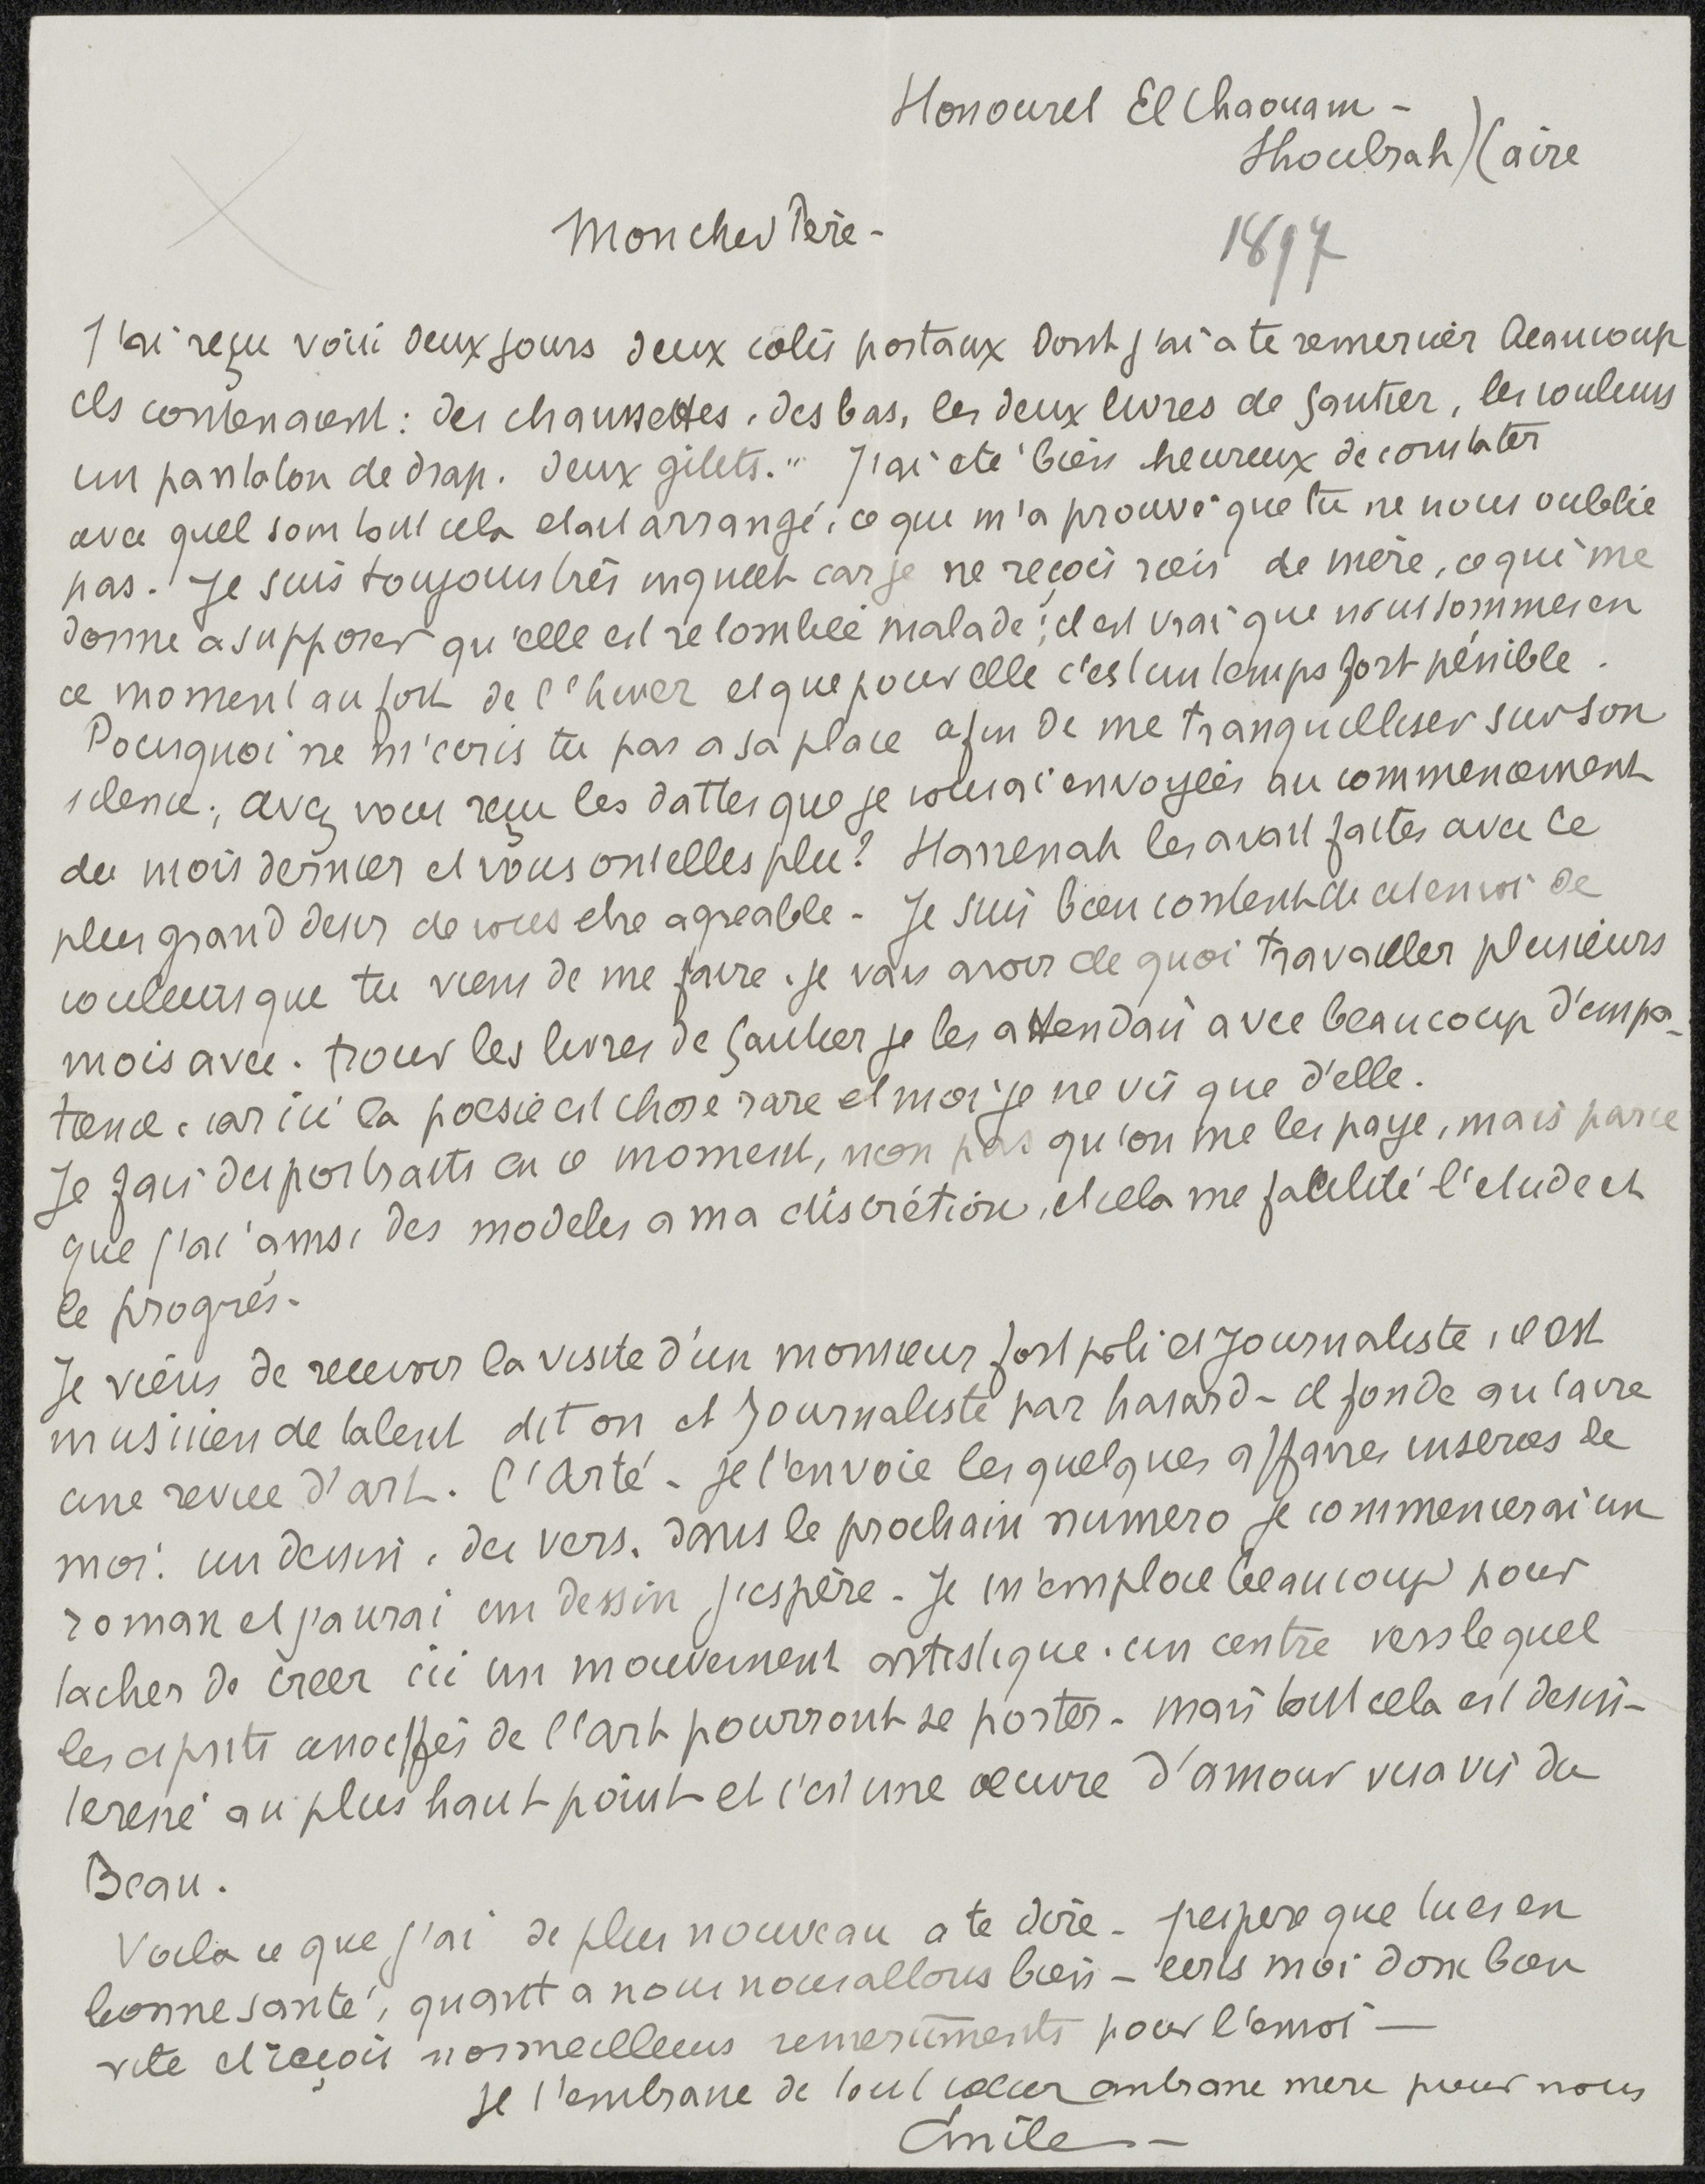 Honourel El Chaouam -
Shoubrah) Caire
Mon cher Père -
1897
J'ai reçu voici deux jours deux colis postaux dont j'ai a te remercier beaucoup
ils contenaient : des chaussettes, des bas, les deux livres de Gautier, les couleurs
un pantalon de drap. deux gilets. " J'ai eté bien heureux de constater
avec quel soin tout cela etait arrangé, ce que m'a prouvé que tu ne nous oublie
pas. Je suis toujours très inquiet car je ne reçois rien de mère, ce qui me
donne a supposer qu'elle est retombée malade ; il est vrai que nous sommes en
ce moment au fort de l'hiver et que pour elle c'est un temps fort pénible .
Pourquoi ne m'ecris tu pas a sa place afin de me tranquilliser sur son
silence ; avez vous reçu les dattes que je vous ai envoyées au commencement
du mois dernier et vous ont elles plu ? Hanenah les avait faites avec le
plus grand desir de vous etre agreable - Je suis bien content de cet envoi de
couleurs que tu viens de me faire. je vais avoir de quoi travailler plusieurs
mois avec. pour les livres de Gautier je les attendais avec beaucoup d'impa-
tience, car ici la poesie est chose rare et moi je ne vis que d'elle.
Je fais des portraits en ce moment, non pas qu'on me les paye, mais parce
que j'ai ainsi des modeles a ma discrétion, et cela me facilité l'etude et
le progrés -
Je viens de recevoir la visite d'un monsieur fort poli et journaliste, il est
musicien de talent dit on et journaliste par hasard - il fonde au Caire
une revue d'art. l'Arté - je t'envoie les quelques affaires inserees de
moi : un dessin, des vers. dans le prochain numero je commencerai un
roman et j'aurai un dessin j'espère - Je m'emploie beaucoup pour
tacher de créer ici un mouvement artistique. un centre vers lequel
les esprits de l'art pourront se porter - mais tout cela est desin-
teressé au plus haut point et c'est une oeuvre d'amour vis a vis du
Beau .
Voila ce que j'ai de plus nouveau a te dire - j'espere que tu es en
bonne santé, quant a nous nous allons bien - ecris moi donc bien
vite et reçois nos meilleurs remerciments pour l'envoi —
Je t'embrasse de tout coeur embrasse mere pour nous
Émile —